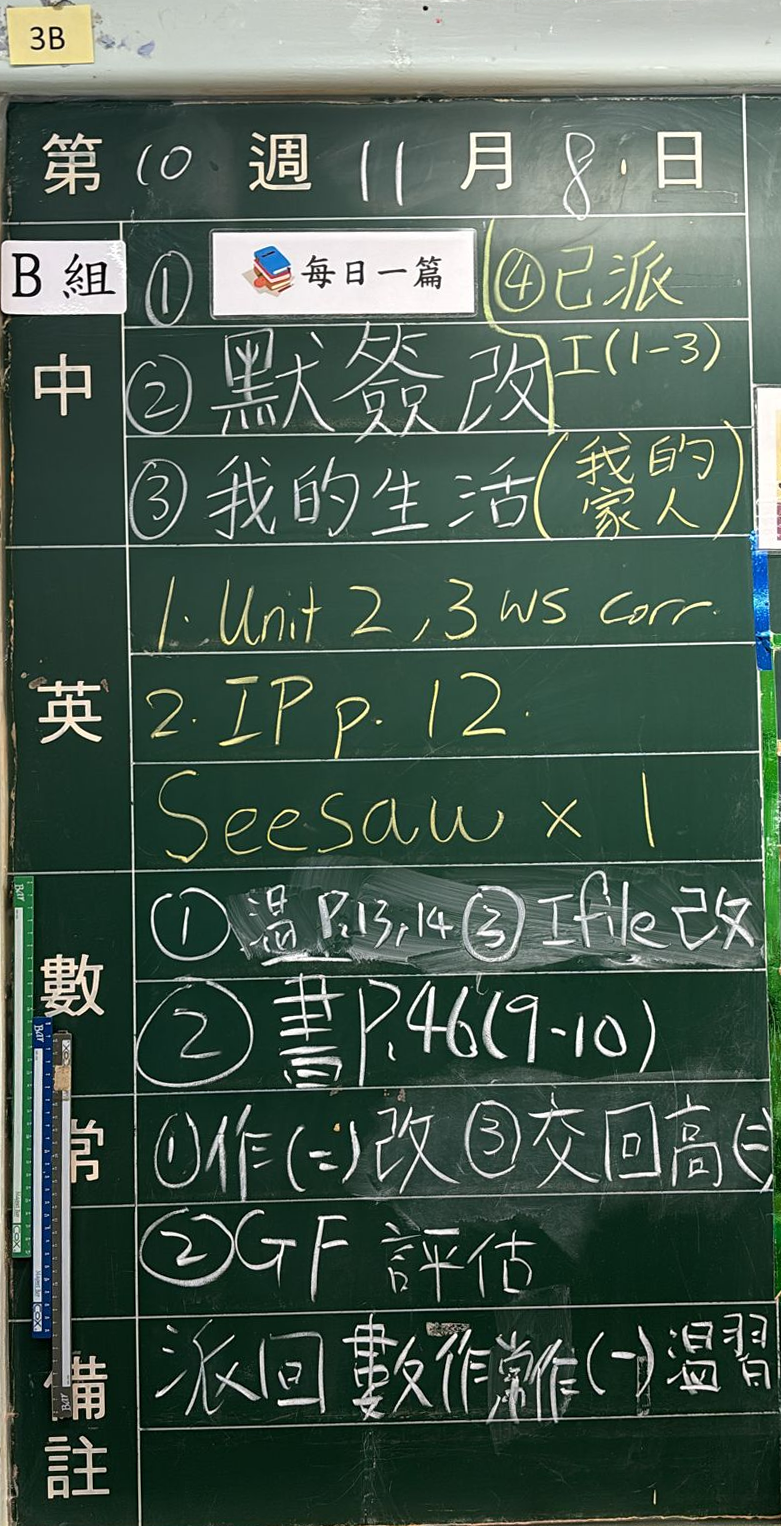 3B
第 10 週 11 月 8 日
B組
① 每日一篇 ④已派
中
② 默簽改 I(1-3)
③ 我的生活(我的家人)
英
1. Unit 2, 3 ws corr
2. IP p. 12.
Seesaw x 1
數
① 溫 P.13,14 ③ Ifile 改
② 書P.46(9-10)
常
①作(二)改 ③交回高(三
②GF 評估
備註
派回數作常作(一)溫習